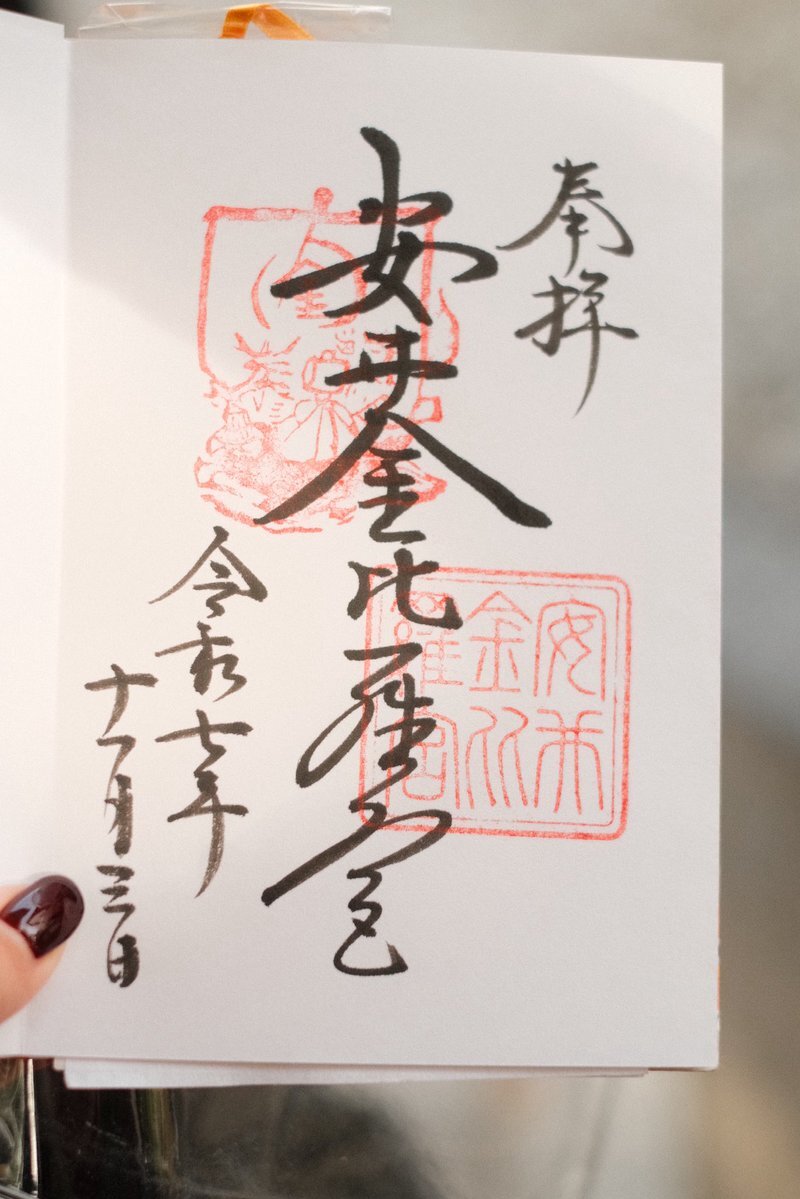 奉拝
安井金比羅宮
令和七年
十一月三日
安井
金比
羅宮